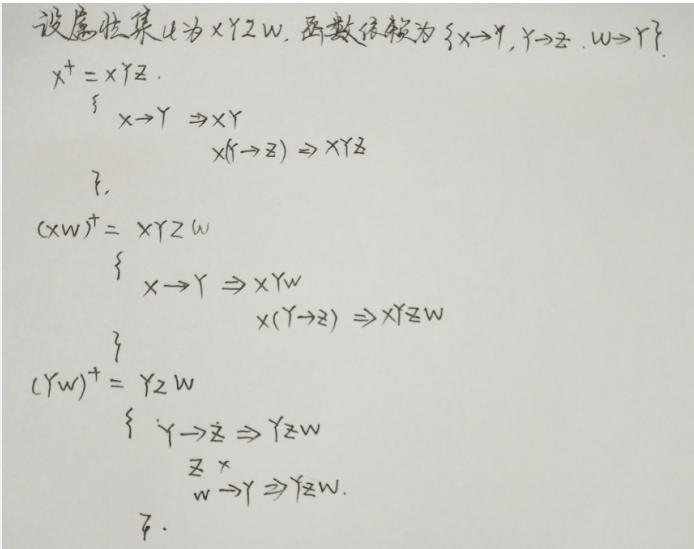 设属性集U为XYZW.函数依赖为{X→Y,Y→Z.W→Y}.
X⁺=XYZ.
{
X→Y ⇒XY
X(Y→Z) ⇒ XYZ
}.
(XW)⁺= XYZW
{
X→Y ⇒ XYW
X(Y→Z) ⇒XYZW
}
(YW)⁺= YZW
{ Y→Z ⇒ YZW
Z ×
W→Y ⇒YZW.
}.